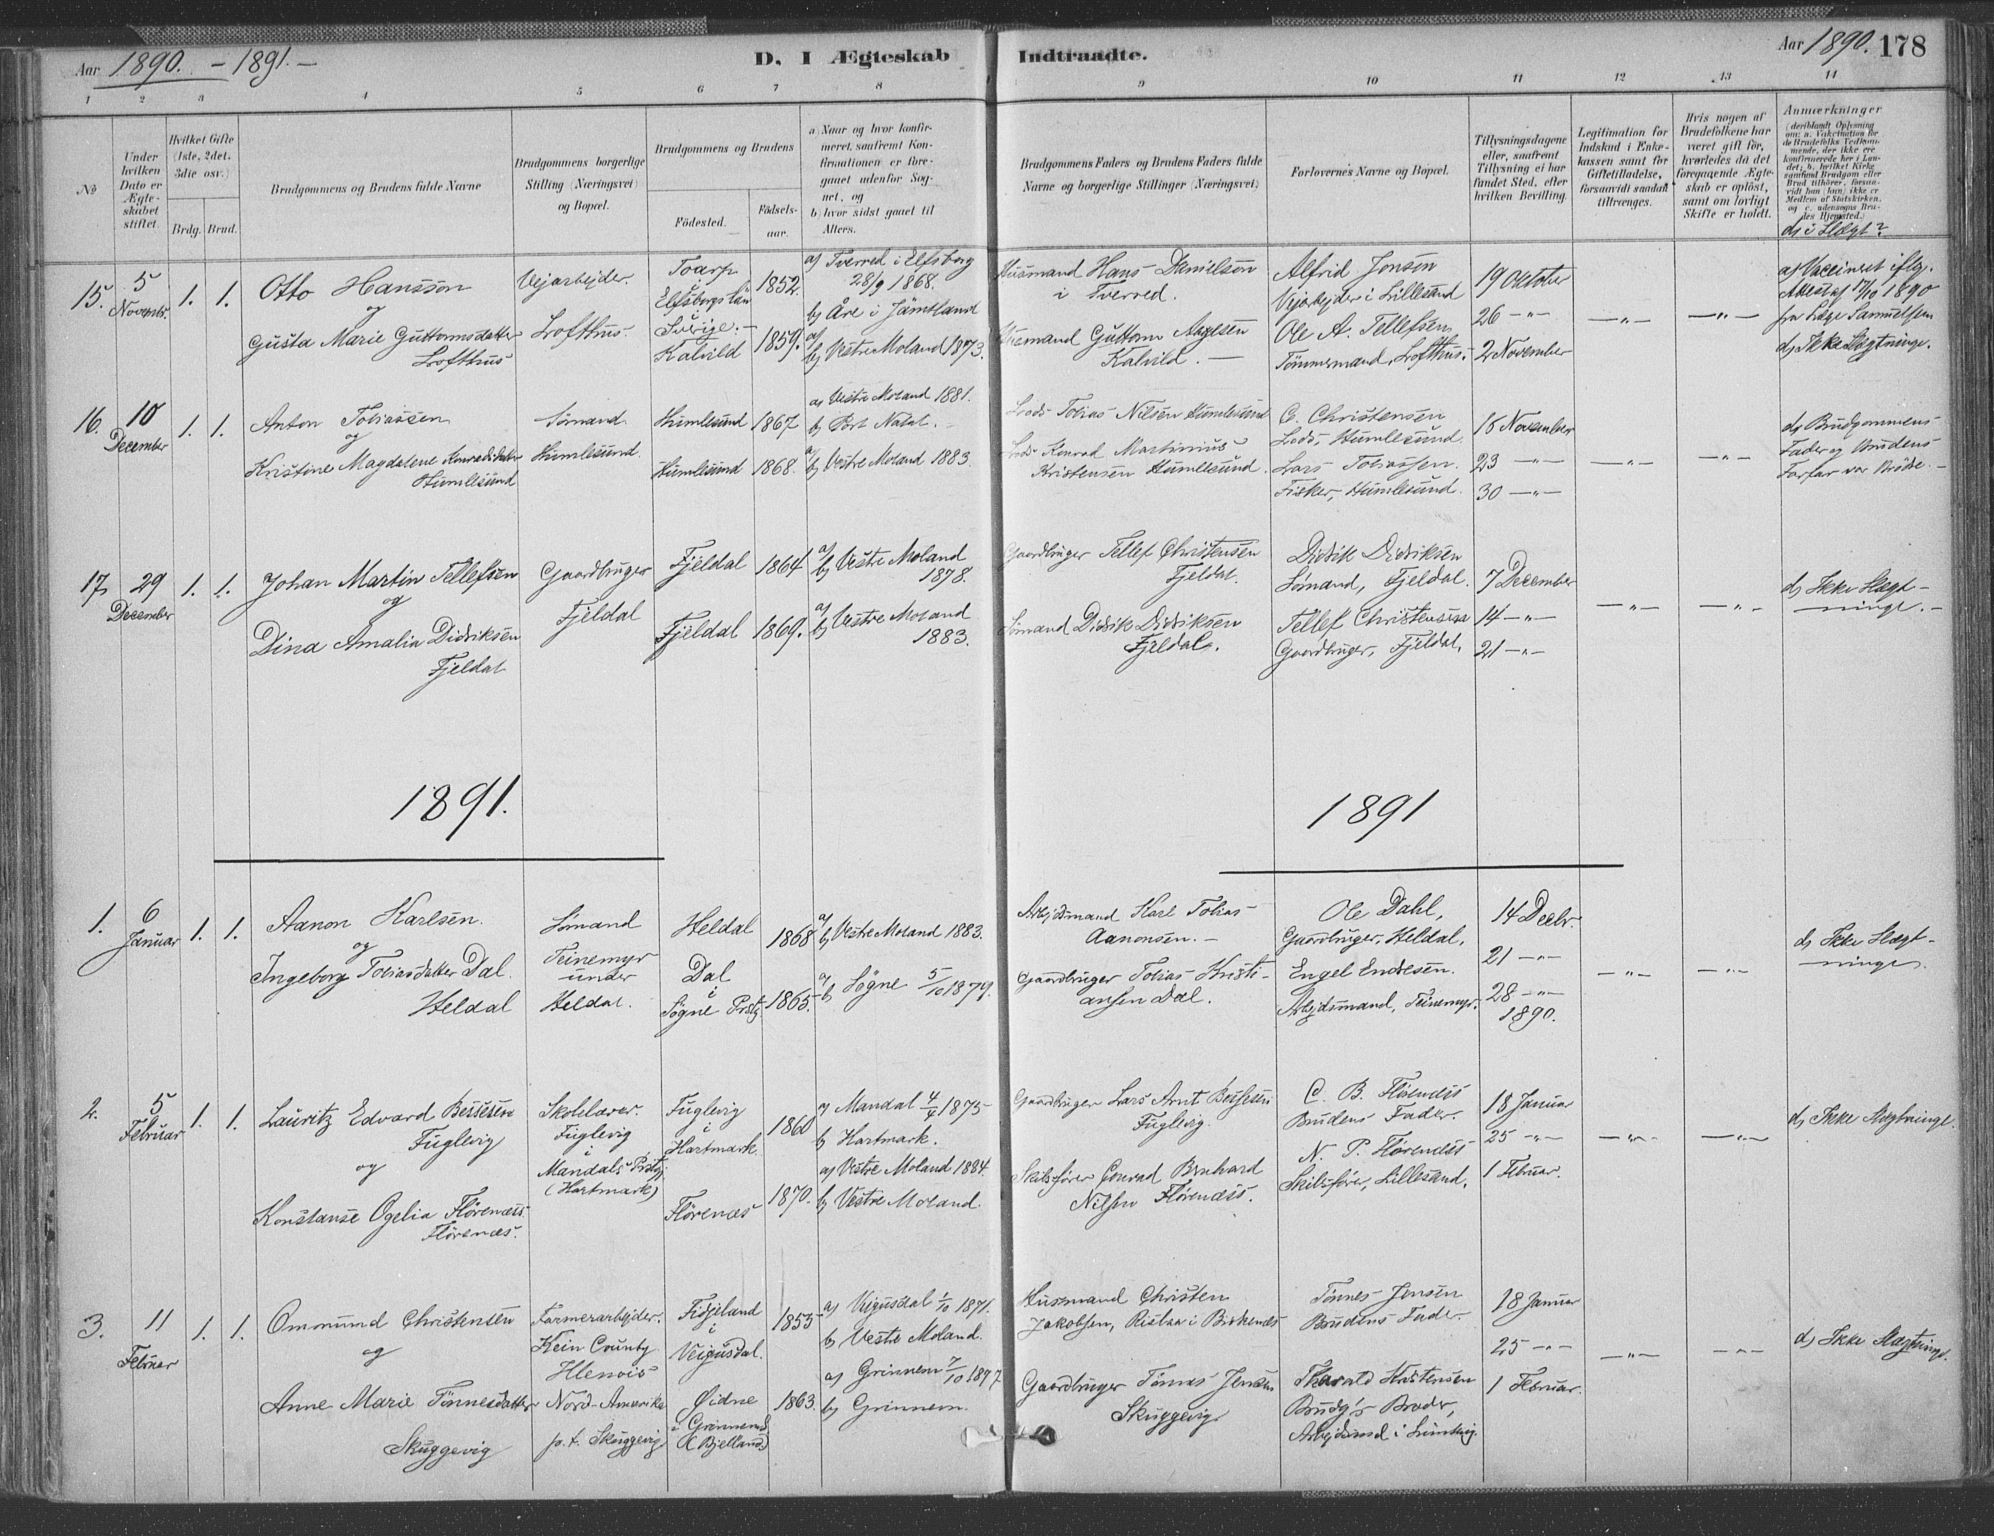 Aar 1890. - 1891. -
D. I Ægteskab
Indtraadte.
Aar 1890. 178
1 2 3 4 5 6 7 8 9 10 11 12 13 14
No
Under hvilken Dato er Ægteskabet stiftet.
Hvilket Gifte (1ste, 2det, 3die osv.)
Brdg. Brud.
Brudgommens og Brudens fulde Navne
Brudgommens borgerlige Stilling (Næringsvei) og Bopæl.
Brudgommens og Brudens
Fødested.
Fødselsaar.
a) Naar og hvor konfirmeret, saafremt Konfirmationen er foregaaet udenfor Sognet, og
b) hvor sidst gaaet til Alters.
Brudgommens Faders og Brudens Faders fulde Navne og borgerlige Stillinger (Næringsvei)
Forlovernes Navne og Bopæl.
Tillysningsdagene eller, saafremt Tillysning ei har fundet Sted, efter hvilken Bevilling.
Legitimation for Indskud i Enkekassen samt for Giftetilladelse, forsaavidt saadan tiltrænges.
Hvis nogen af Brudefolkene har været gift før, hvorledes da det foregaaende Ægteskab er opløst, samt om lovligt Skifte er holdt.
Anmærkninger
(deriblandt Oplysning om: a. Vaksination for de Brudefolks Vedkommende, der ikke ere konfirmerede her i Landet; b. hvilket Kirkesamfund Brudgom eller Brud tilhører, forsaavidt han (hun) ikke er Medlem af Statskirken, og c. udensogns Brudes Hjemsted.)
d) i Slægt?
15. 5 November 1. 1.
Otto Hansson
og
Gusta Marie Guttormsdatter
Lofthus
Vejarbejder.
Lofthus.
Toarp
Elfsborgs Län
i
Sverige. -
Kalvild
1852.
1859.
a) Tverred i Elfsborg
28/9 1868.
b) Åre i Jämtland
a)
b) Vestre Moland 1873.
Husmand Hans Danielson
i Tverred.
Husmand Guttorm Axelsen
Kalvild. -
Alfrid Jonson
Vejarbejder i Lillesand
Ole A. Tellefsen
Tømmermand, Lofthus.
19 Oktober
26 -"-
2 November
-"- -"-
a) Vaccineret iflg.
Attest af 17/10 1890
fra Læge Samuelsen
d) Ikke Slægtninge.
16. 10 December 1. 1.
Anton Tobiassen
og
Kristine Magdalene Konradsdatter
Humlesund
Sømand.
Humlesund.
Humlesund
Humlesund
1867
1868.
a) Vestre Moland 1881.
b) Port Natal. -
a)
b) Vestre Moland 1883.
Lods Tobias Nilsen Humlesund
Lods Konrad Martinius
Kristensen Humlesund.
C. Christensen
Lods, Humlesund.
Lars Tobiassen.
Fisker, Humlesund.
16 November
23 -"-
30 -"-
-"- -"-
d) Brudgommens
Fader og Brudens
Farfar var Brødre. -
17. 29 December 1. 1.
Johan Martin Tellefsen
og
Dina Amalia Didriksen
Fjeldal
Gaardbruger
Fjeldal
Fjeldal
Fjeldal
1864
1869.
a)
b) Vestre Moland
1878.
a)
b) Vestre Moland
1883.
Gaardbruger Tellef Christensen
Fjeldal.
Sømand Didrik Didriksen
Fjeldal.
Didrik Didriksen
Sømand, Fjeldal.
Tellef Christensen
Gaardbruger, Fjeldal.
7 December
14 -"-
21 -"-
-"- -"-
d) Ikke Slægt-
ninge. -
1891.
1891
1. 6 Januar 1. 1.
Aanon Karlsen.
og
Ingeborg Tobiasdatter Dal.
Heldal
Sømand
Teinemyr
under
Heldal.
Heldal
Dal
i
Søgne Prstg.
1868
1865.
a)
b) Vestre Moland 1883.
a)
b) Søgne 5/10 1879.
Arbejdsmand Karl Tobias
Aanonsen. -
Gaardbruger Tobias Kristi-
ansen Dal.
Ole Dahl,
Gaardbruger, Heldal.
Engel Endresen.
Arbejdsmand, Teinemyr.
14 Decbr.
21 -"-
28 -"-
1890.
-"- -"-
d) Ikke Slægt-
ninge.
2. 5 Februar 1. 1.
Lauritz Edvard Bessesen
Fuglevig
og
Konstanse Ogelia Flørenæss
Flørenæs.
Skolelærer.
Fuglevig
i
Mandals Prstg.
(Hartmark)
Fuglevig
i
Hartmark.
Flørenæs
1860
1870.
a) Mandal 4/4 1875
b) Hartmark.
a) Vestre Moland 1884.
b) Vestre Moland.
Gaardbruger Lars Arnt Bessesen
Fuglevig.
Skibsfører Conrad Bernhard
Nilsen Flørenæss.
C. B. Flørenæss
Brudens Fader.
N. P. Flørenæss
Skibsfører, Lillesand.
18 Januar
25 -"-
1 Februar.
-"- -"-
d) Ikke Slægtninge.
3. 11 Februar 1. 1.
Ommund Christensen
og
Anne Marie Tønnesdatter
Skuggevig
Farmerarbejder.
Kein County
Illenois
Nord-Amerika
p.t. Skuggevig
Fidjeland
i
Veigusdal.
Øidne
i Grinnem
(Bjelland)
1855
1863.
a) Vejgusdal 1/10 1871.
b) Vestre Moland.
a) Grinnem 7/10 1877
b) Grinnem.
Husmand Christen
Jakobsen, i Birkenæs
Gaardbruger Tønnes Jensen
Skuggevig
Tønnes Jensen
Brudens Fader.
Tharald Kristensen
Brudg's Broder,
18 Januar
25 -"-
1 Februar.
-"- -"-
d) Ikke Slægtninge.